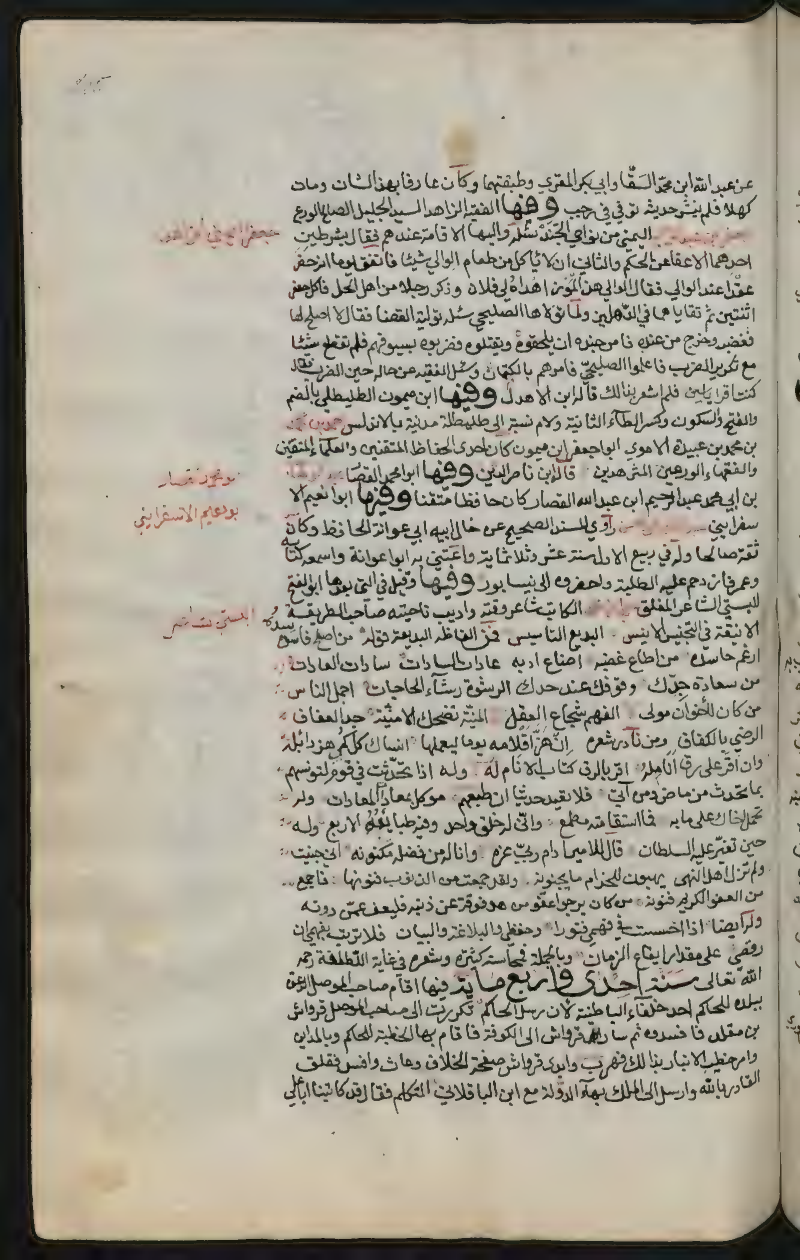 عن عبد الله ابن محمد السقا وابي بكر المقري وطبقتهما وكان عارفا بهذا الشان ومات
كهلا فلم ينشر حديثه توفي في رجب وفيها الفقيه الزاهد السيد الجليل الصالح الورع
اليمني من نواحي الجند سئل واليها الاقامة عندهم فقال بشرطين
احدهما الاعفا من الحكم والثاني ان لا ياكل من طعام الوالي شيئا فاتفق يوما انه حضر
عقدا عند الوالي فقال الوالي هذا الموز اهداه لي فلان وذكر رجلا من اهل الحل فاكل جعفر
اثنتين ثم تقاياهما في الدهلين ولما تولاها الصليحي سئل تولية القضا فقال لا اصلح لها
فغضب وخرج من عنده فامر جنده ان يلحقوه ويقتلوه وضربوه بسيوفهم فلم تقطع شيئا
مع تكرير الضرب فاعلموا الصليحي فامرهم بالكتمان وسئل الفقيه عن حاله حين الضرب فقال
كنت اقرا يس فلم اشعر بذالك قاله ابن الاهدل وفيها ابن ميمون الطليطلي بالضم
والفتح والسكون وكسر الطاء الثانية ولام نسبة الى طليطلة مدينة بالاندلس
بن محمد بن عبيدة الاموي ابو جعفر ابن ميمون كان احدى الحفاظ المتقنين والعلماء المتقين
والفقهاء الورعين المتزهدين قاله ابن ناصر الدين وفيها ابو محمد القصار
بن ابي محمد عبد الرحيم ابن عبد الله القصار كان حافظا متقنا وفيها ابو انعيم الا
سفرايني راوي المسند الصحيح عن خال ابيه ابي عوانة الحافظ وكان
ثقة صالحا ولد في ربيع الاول سنة عشر وثلاثماية واعتنى به ابو اعوانة واسمعه كتابه
وعمر فازدحم عليه الطلبة واحضروه الى نيسابور وفيها وقيل في التي بعدها ابو الفتح
البستي الشاعر المفلق الكاتب شاعر وقته واديب ناحيته صاحب الطريقة
الانيقة في التجنيس الانيس البديع التاسيس فمن الفاظه البديعة قوله من اصلح فاسده
ارغم حاسده من اطاع غضبه اضاع ادبه عادات السادات سادات العادات
من سعادة جدك وقوفك عند حدك الرشوة رشاء الحاجات اجهل الناس
من كان للاخوان مولى الفهم شعاع العقل المنية تضحك الامنية حد العفاف
الرضي بالكفاف ومن نادر شعره ان هز اقلامه يوما ليعملها انساك كل كمي هز ذابله
وان اقر على رق انامله اقر بالرق كتاب الانام له وله اذا تحدثت في قوم لتونسهم
بما تحدث من ماض ومن آتي فلا تعيد حديثا ان طبعهم موكل بمعادات المعادات وله
تحمل اخاك على ما به فما استقامته مطمع وانى له خلق واحد وفيه طبايعه الاربع وله
حين تغير عليه السلطان قال للاميرا دام ربي عزه واناله من فضله مكنونه اني جنيت
ولم تزل اهل النهى يهبون للخدام ما يجنونه ولقد جمعت من الذنوب فنونها فاجمع
من العفو الكريم فنونه من كان يرجوا عفو من هو فوقه عن ذنبه فليعف عمن دونه
وله ايضا اذا احسست في فهمي فتورا وحفظي والبلاغة والبيان فلا ترتب بفهمي ان
رقصي على مقدار ايقاع الزمان وبالجملة فمحاسنه كثيرة وشعره في غاية اللطافة رحمه
الله تعالى سنة احدى واربع ماية فيها اقام صاحب الموصل الدعوة
ببلده للحاكم احد خلفاء الباطنية لان رسل الحاكم تكررت الى صاحب الموصل قرواش
بن مقلد فافسدوه ثم سار قرواش الى الكوفة فاقام بها الخطبة للحاكم وبالمداين
وامر خطيب الانبار بذالك فهرب وابدى قرواش صفحة الخلاف وعاث وافسد فقلق
القادر بالله وارسل الى الملك بهاء الدولة مع ابن الباقلاني المتكلم فقال قد كاتبنا ابا علي